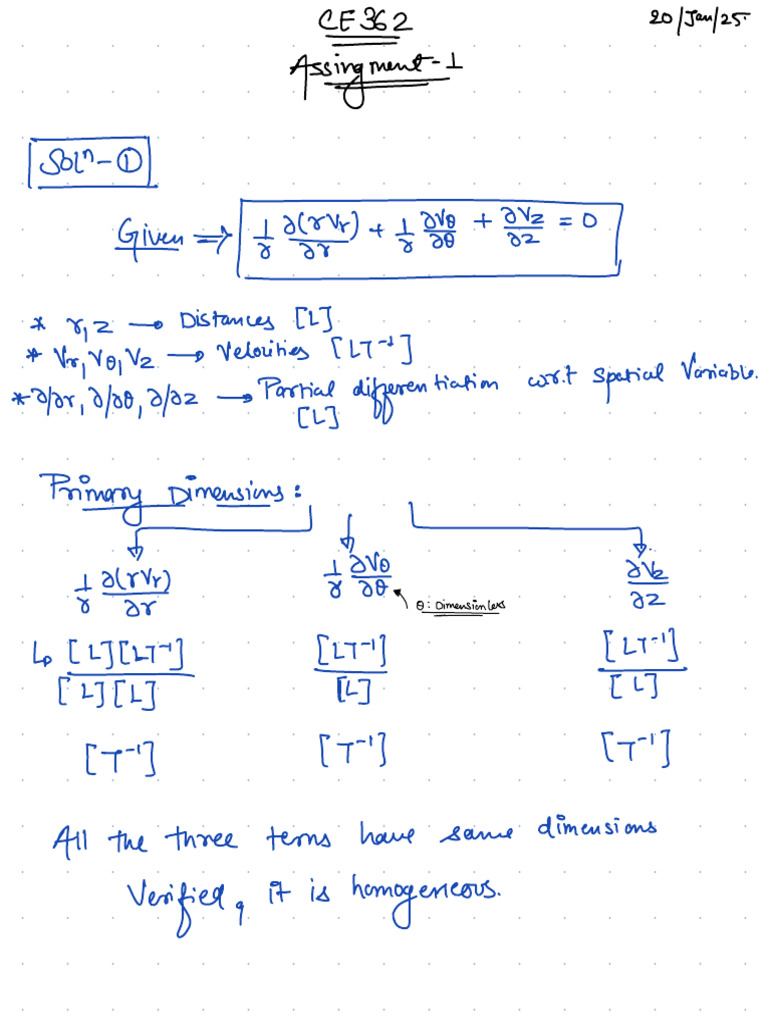 CE362
20/Jan/25
Assingment-1
Solⁿ-①
Given ⇒ 1/r ∂(rVr)/∂r + 1/r ∂Vθ/∂θ + ∂Vz/∂z = 0
* r, z → Distances [L]
* Vr, Vθ, Vz → Velocities [LT⁻¹]
* ∂/∂r, ∂/∂θ, ∂/∂z → Partial differentiation w.r.t spatial Variable.
[L]
Primary Dimensions:
1/r ∂(rVr)/∂r   1/r ∂Vθ/∂θ   ∂Vz/∂z
θ: Dimensionless
↳ [L][LT⁻¹]/[L][L]   [LT⁻¹]/[L]   [LT⁻¹]/[L]
[T⁻¹]   [T⁻¹]   [T⁻¹]
All the three terms have same dimensions
Verified, it is homogeneous.